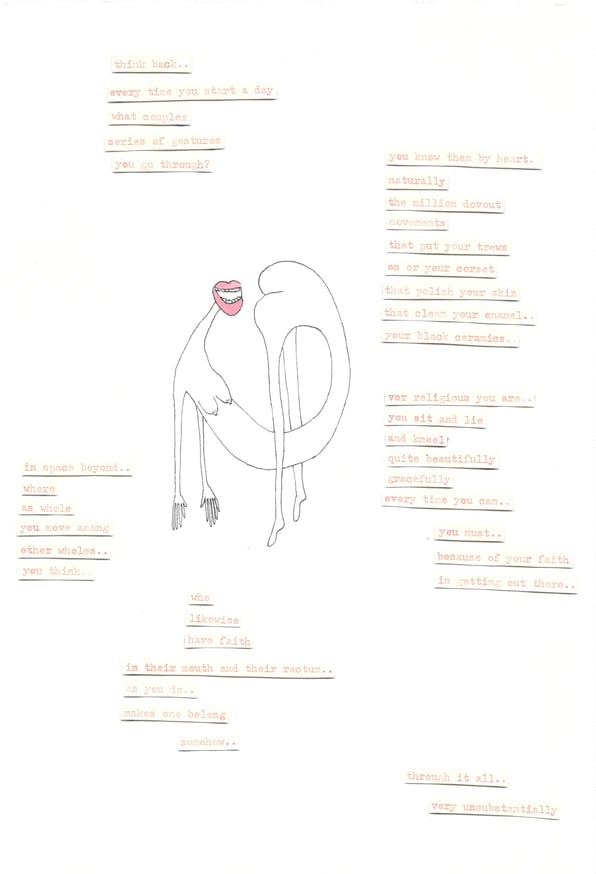 think back..
every time you start a day
what complex
series of gestures
you go through?
you know them by heart..
naturally
the million devout
movements
that put your trews
on or your corset
that polish your skin
that clean your enamel..
your black ceramics..
ver religious you are..!
you sit and lie
and kneel!
quite beautifully
gracefully
every time you can..
you must..
because of your faith
in getting out there..
in space beyond..
where
as whole
you move among
other wholes..
you think..
who
likewise
have faith
in their mouth and their rectum..
as you do..
makes one belong
somehow..
through it all..
very unsubstantially